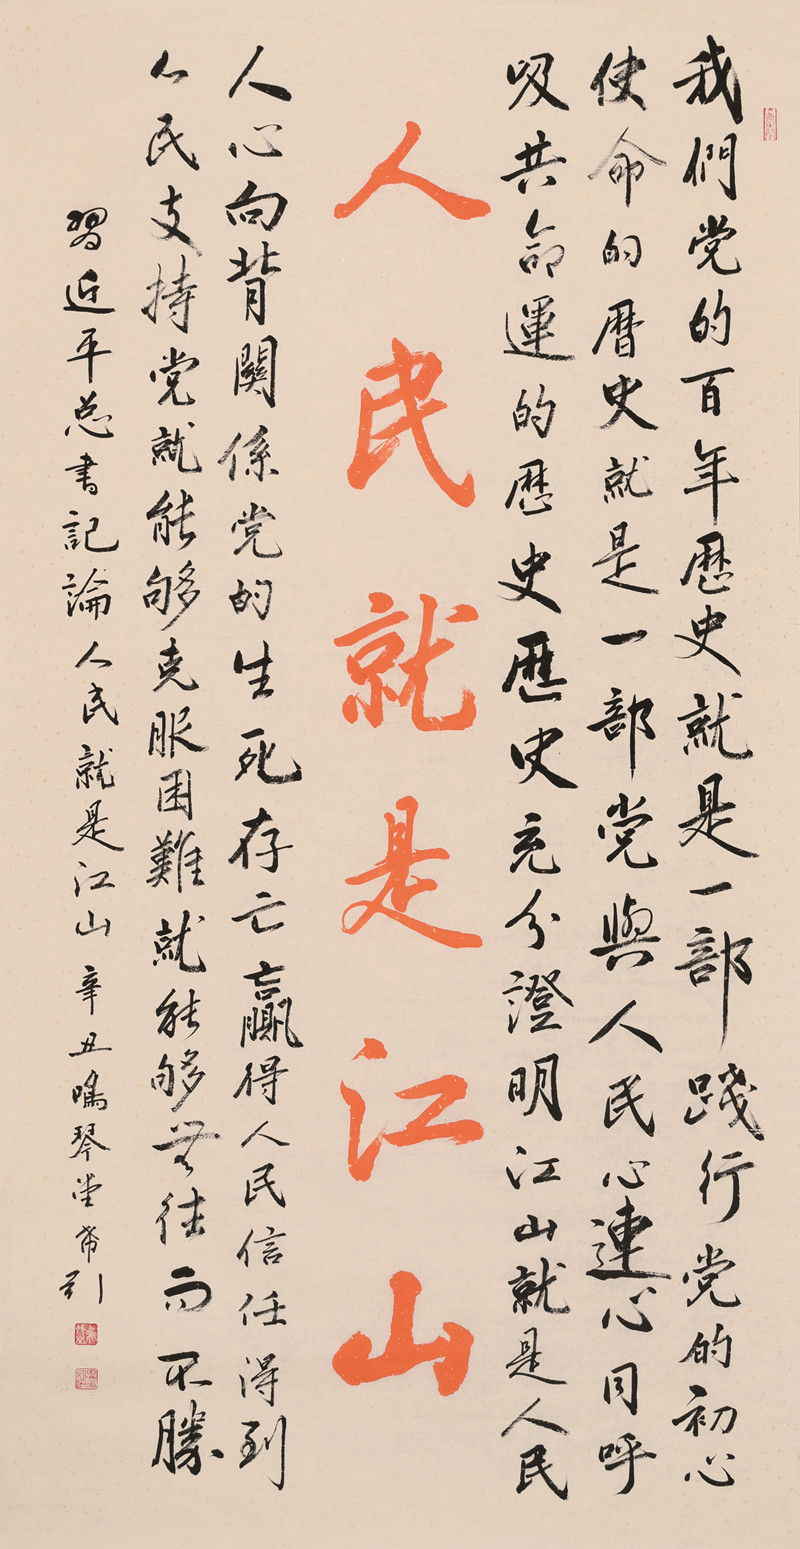 我們党的百年歷史就是一部踐行党的初心
使命的曆史就是一部党與人民心連心同呼
吸共命運的歷史歷史充分證明江山就是人民
人民就是江山
人心向背關係党的生死存亡贏得人民信任得到
人民支持党就能够克服困難就能够无往而不勝
習近平总書記論人民就是江山 辛丑鳴琴堂希引